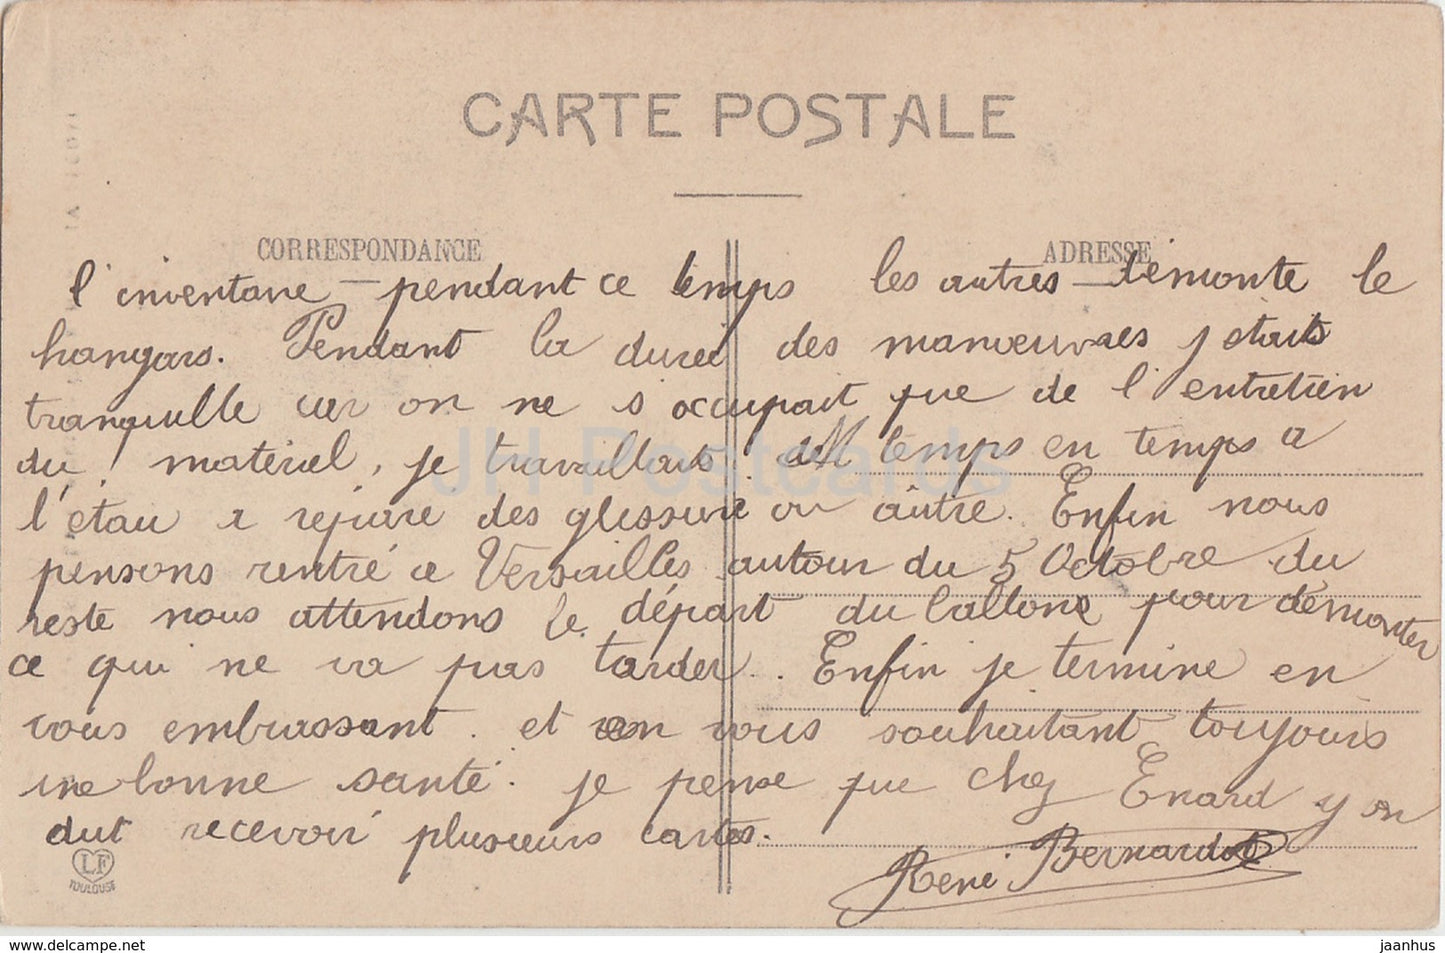 CARTE POSTALE
CORRESPONDANCE
ADRESSE
l'inventaire - pendant ce temps les autres démonte le
hangars. Pendant la durée des manœuvres j'étais
tranquille car on ne s'occupait que de l'entretien
du matériel, je travaillais de temps en temps a
l'étau a repare des glissure ou autre. Enfin nous
pensons rentré a Versailles autour du 5 Octobre du
reste nous attendons le départ du ballone pour démonter
ce qui ne va pas tarder. Enfin je termine en
vous embrassant. et en vous souhaitant toujours
une bonne santé. je pense que chez Enard y on
dut recevoir plusieurs cartes.
René Bernardot
LF
TOULOUSE
JH Postcards
www.delcampe.net
jaanhus